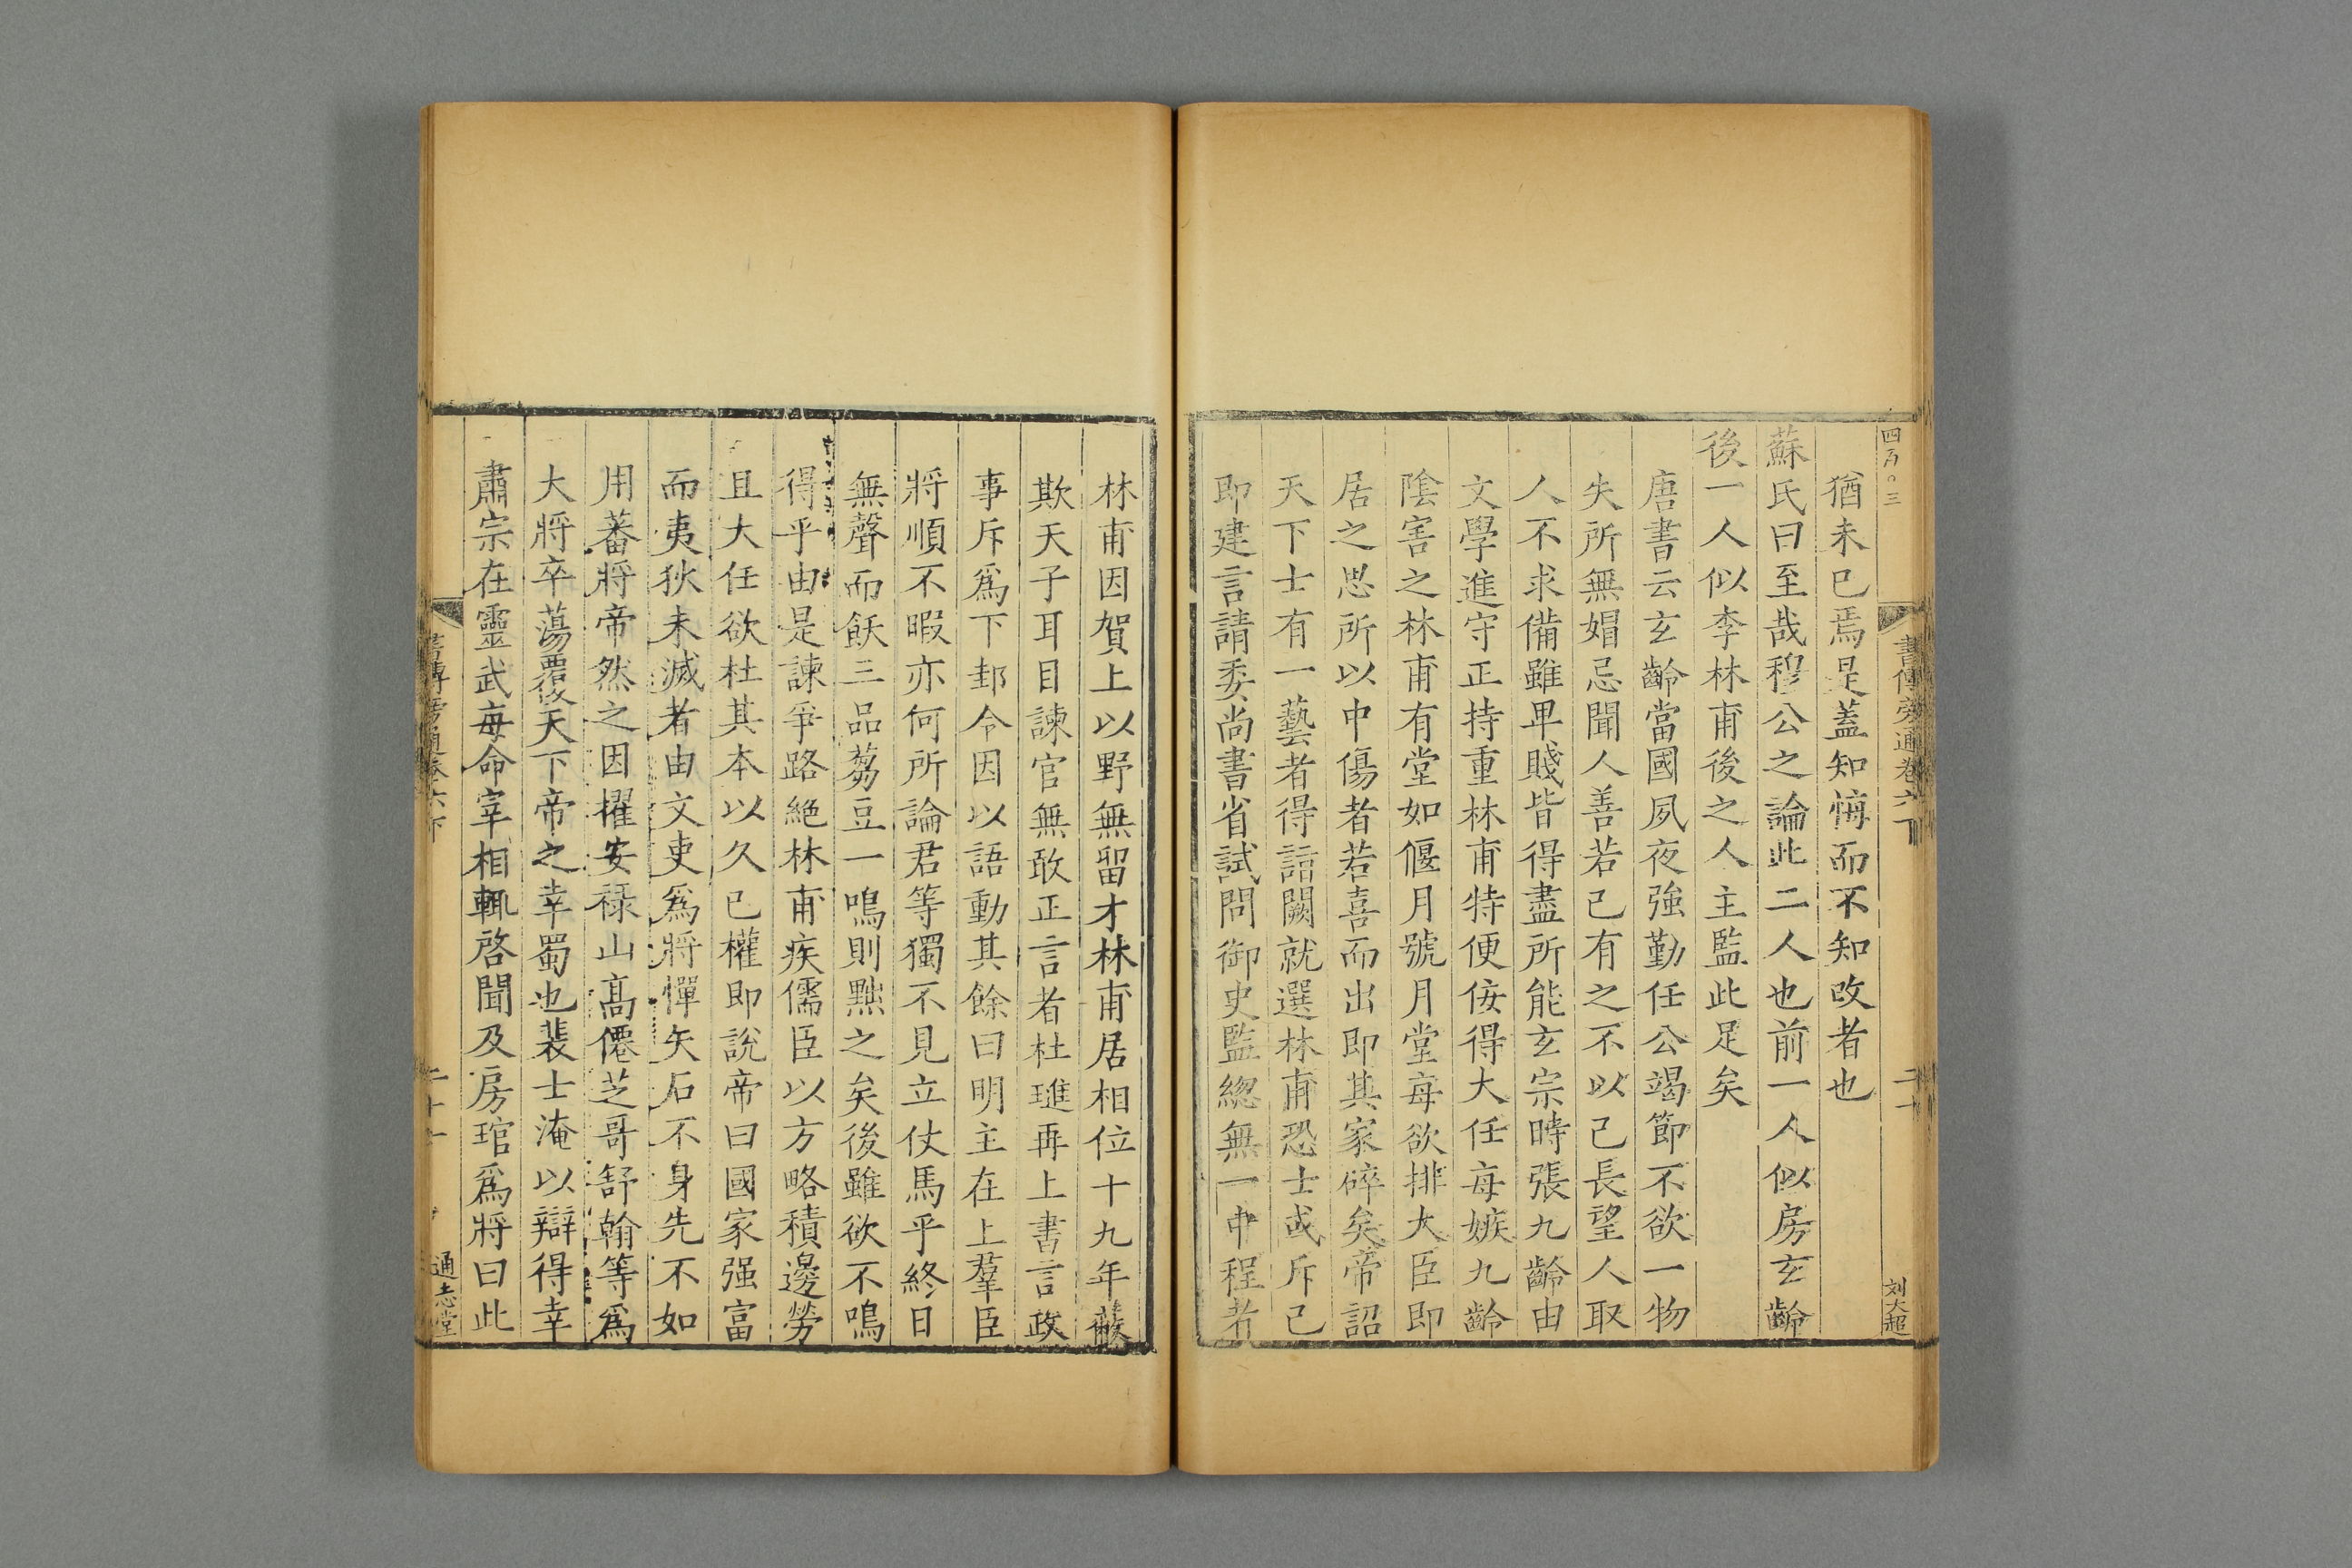 四百〇三
書傳旁通卷六下
二十
刘大超
猶未已焉是蓋知悔而不知改者也
蘇氏曰至哉穆公之論此二人也前一人似房玄齡
後一人似李林甫後之人主監此足矣
唐書云玄齡當國夙夜強勤任公竭節不欲一物
失所無媢忌聞人善若己有之不以己長望人取
人不求備雖卑賤皆得盡所能玄宗時張九齡由
文學進守正持重林甫特便佞得大任每嫉九齡
陰害之林甫有堂如偃月號月堂每欲排大臣即
居之思所以中傷者若喜而出即其家碎矣帝詔
天下士有一藝者得詣闕就選林甫恐士或斥己
即建言請委尚書省試問御史監總無一中程者
林甫因賀上以野無留才林甫居相位十九年蔽
欺天子耳目諫官無敢正言者杜璡再上書言政
事斥爲下邽令因以語動其餘曰明主在上羣臣
將順不暇亦何所論君等獨不見立仗馬乎終日
無聲而飫三品芻豆一鳴則黜之矣後雖欲不鳴
得乎由是諫爭路絶林甫疾儒臣以方略積邊勞
且大任欲杜其本以久己權即說帝曰國家强富
而夷狄未滅者由文吏爲將憚矢石不身先不如
用蕃將帝然之因擢安禄山高僊芝哥舒翰等爲
大將卒蕩覆天下帝之幸蜀也裴士淹以辯得幸
肅宗在靈武每命宰相輒啓聞及房琯爲將曰此
書傳旁通卷六下
二十一
通志堂